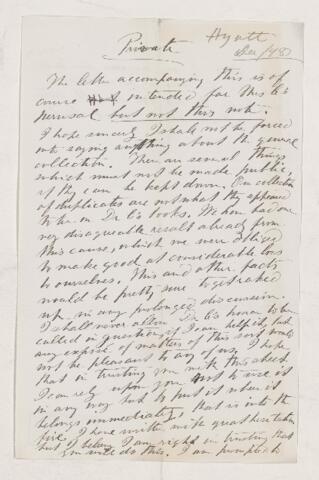 Hyatt
Dec / 78
Private
The letter accompanying this is of
course intended for this Dr's
perusal but not this note.
I hope sincerely I shall not be forced
into saying anything about the general
collection. There are several things
which must not be made public,
if they can be kept down. Our collection
of duplicates are not what they appeared
to be on Dr C's books. We have had one
very disagreeable result already from
this cause, which we were obliged
to make good at considerable loss
to ourselves. This and other facts
would be pretty sure to get raked
up in any prolonged discussion.
I shall never allow Dr C's honor to be
called in question if I can help it, but
any exposé of matters of this sort would
not be pleasant to any of us. I hope
that in trusting you with this sheet
I can rely upon you not to use it
in any way but to put it where it
belongs immediately, that is into the
fire. I have written with great hesitation
but I believe I am right in trusting that
you will do this. I am